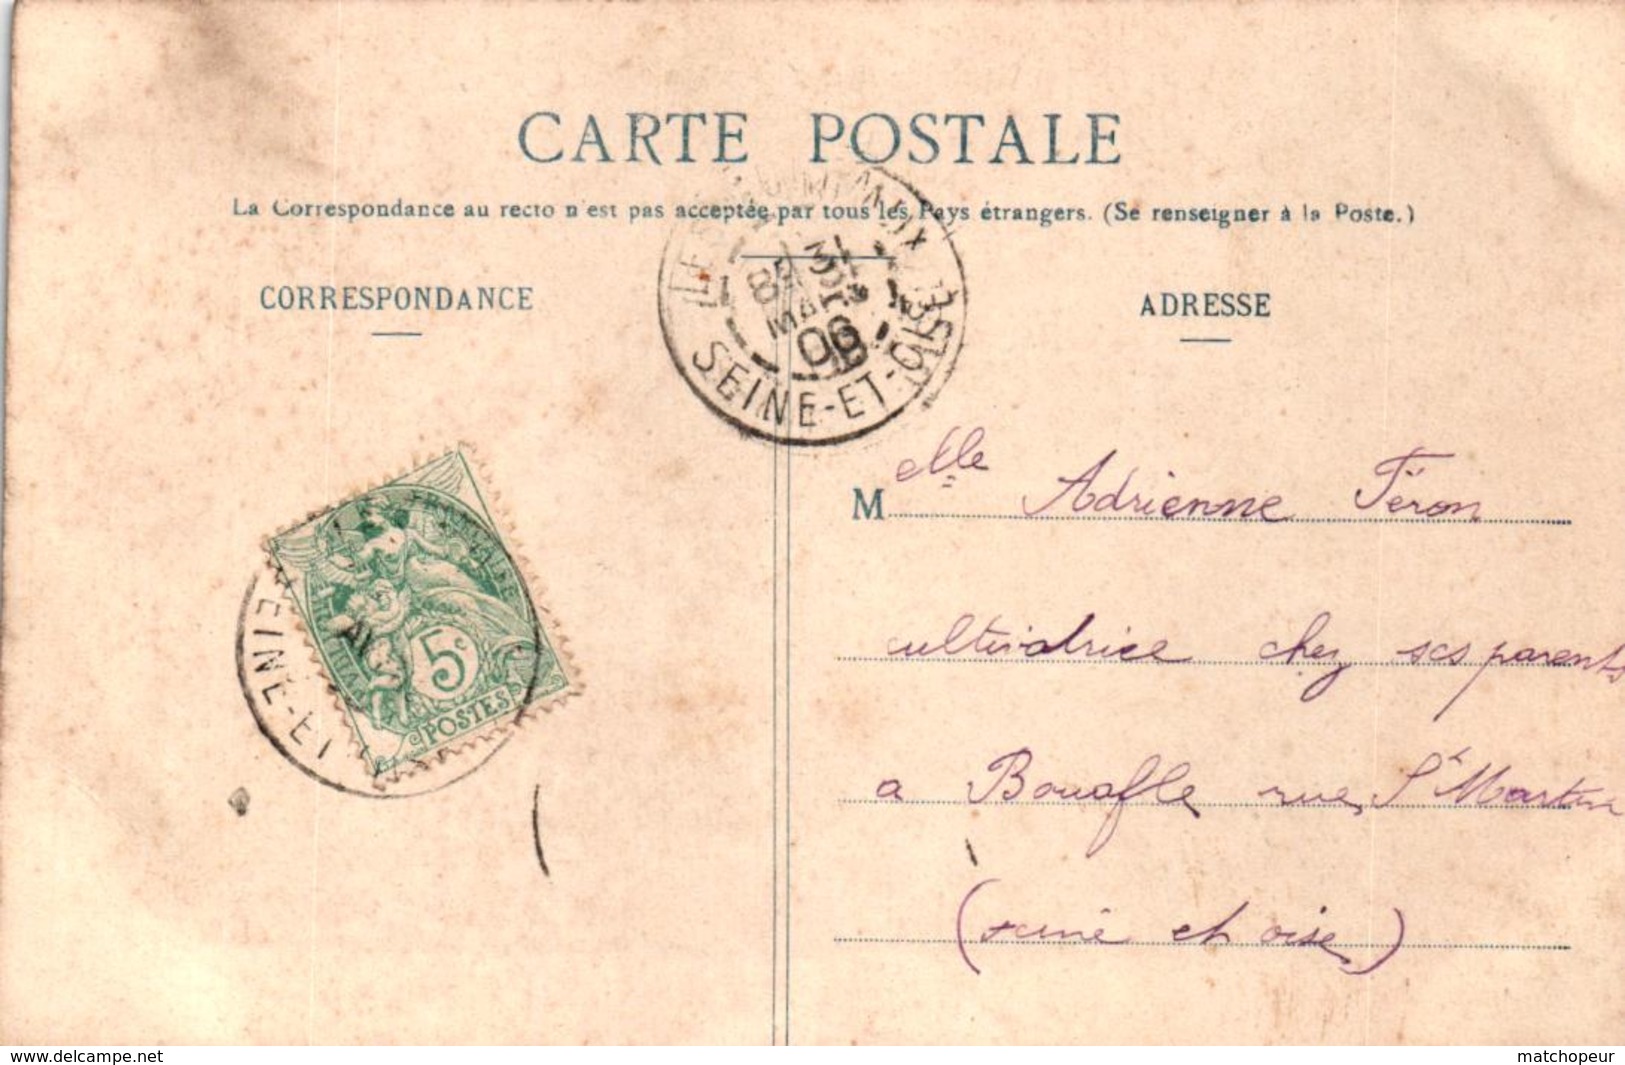 CARTE POSTALE
La Correspondance au recto n'est pas acceptée par tous les Pays étrangers. (Se renseigner à la Poste.)
CORRESPONDANCE
ADRESSE
SEINE-ET-OISE
31
MARS
06
Melle Adrienne Féron
cultivatrice chez ses parents
a Bouafle rue St Martin
(seine et oise)
5c
POSTES
EINE-ET
www.delcampe.net
matchopeur